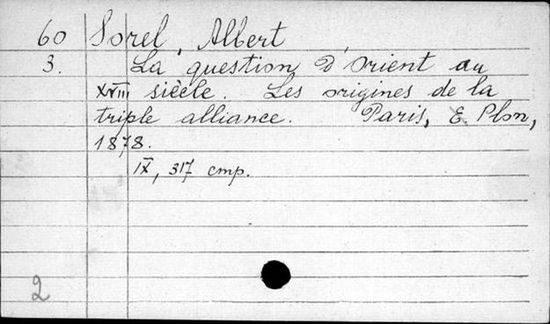 60 Sorel, Albert
3. La question d'Orient au
XVIII siècle. Les origines de la
triple alliance. Paris, E. Plon,
1878.
IX, 317 cmp.
2